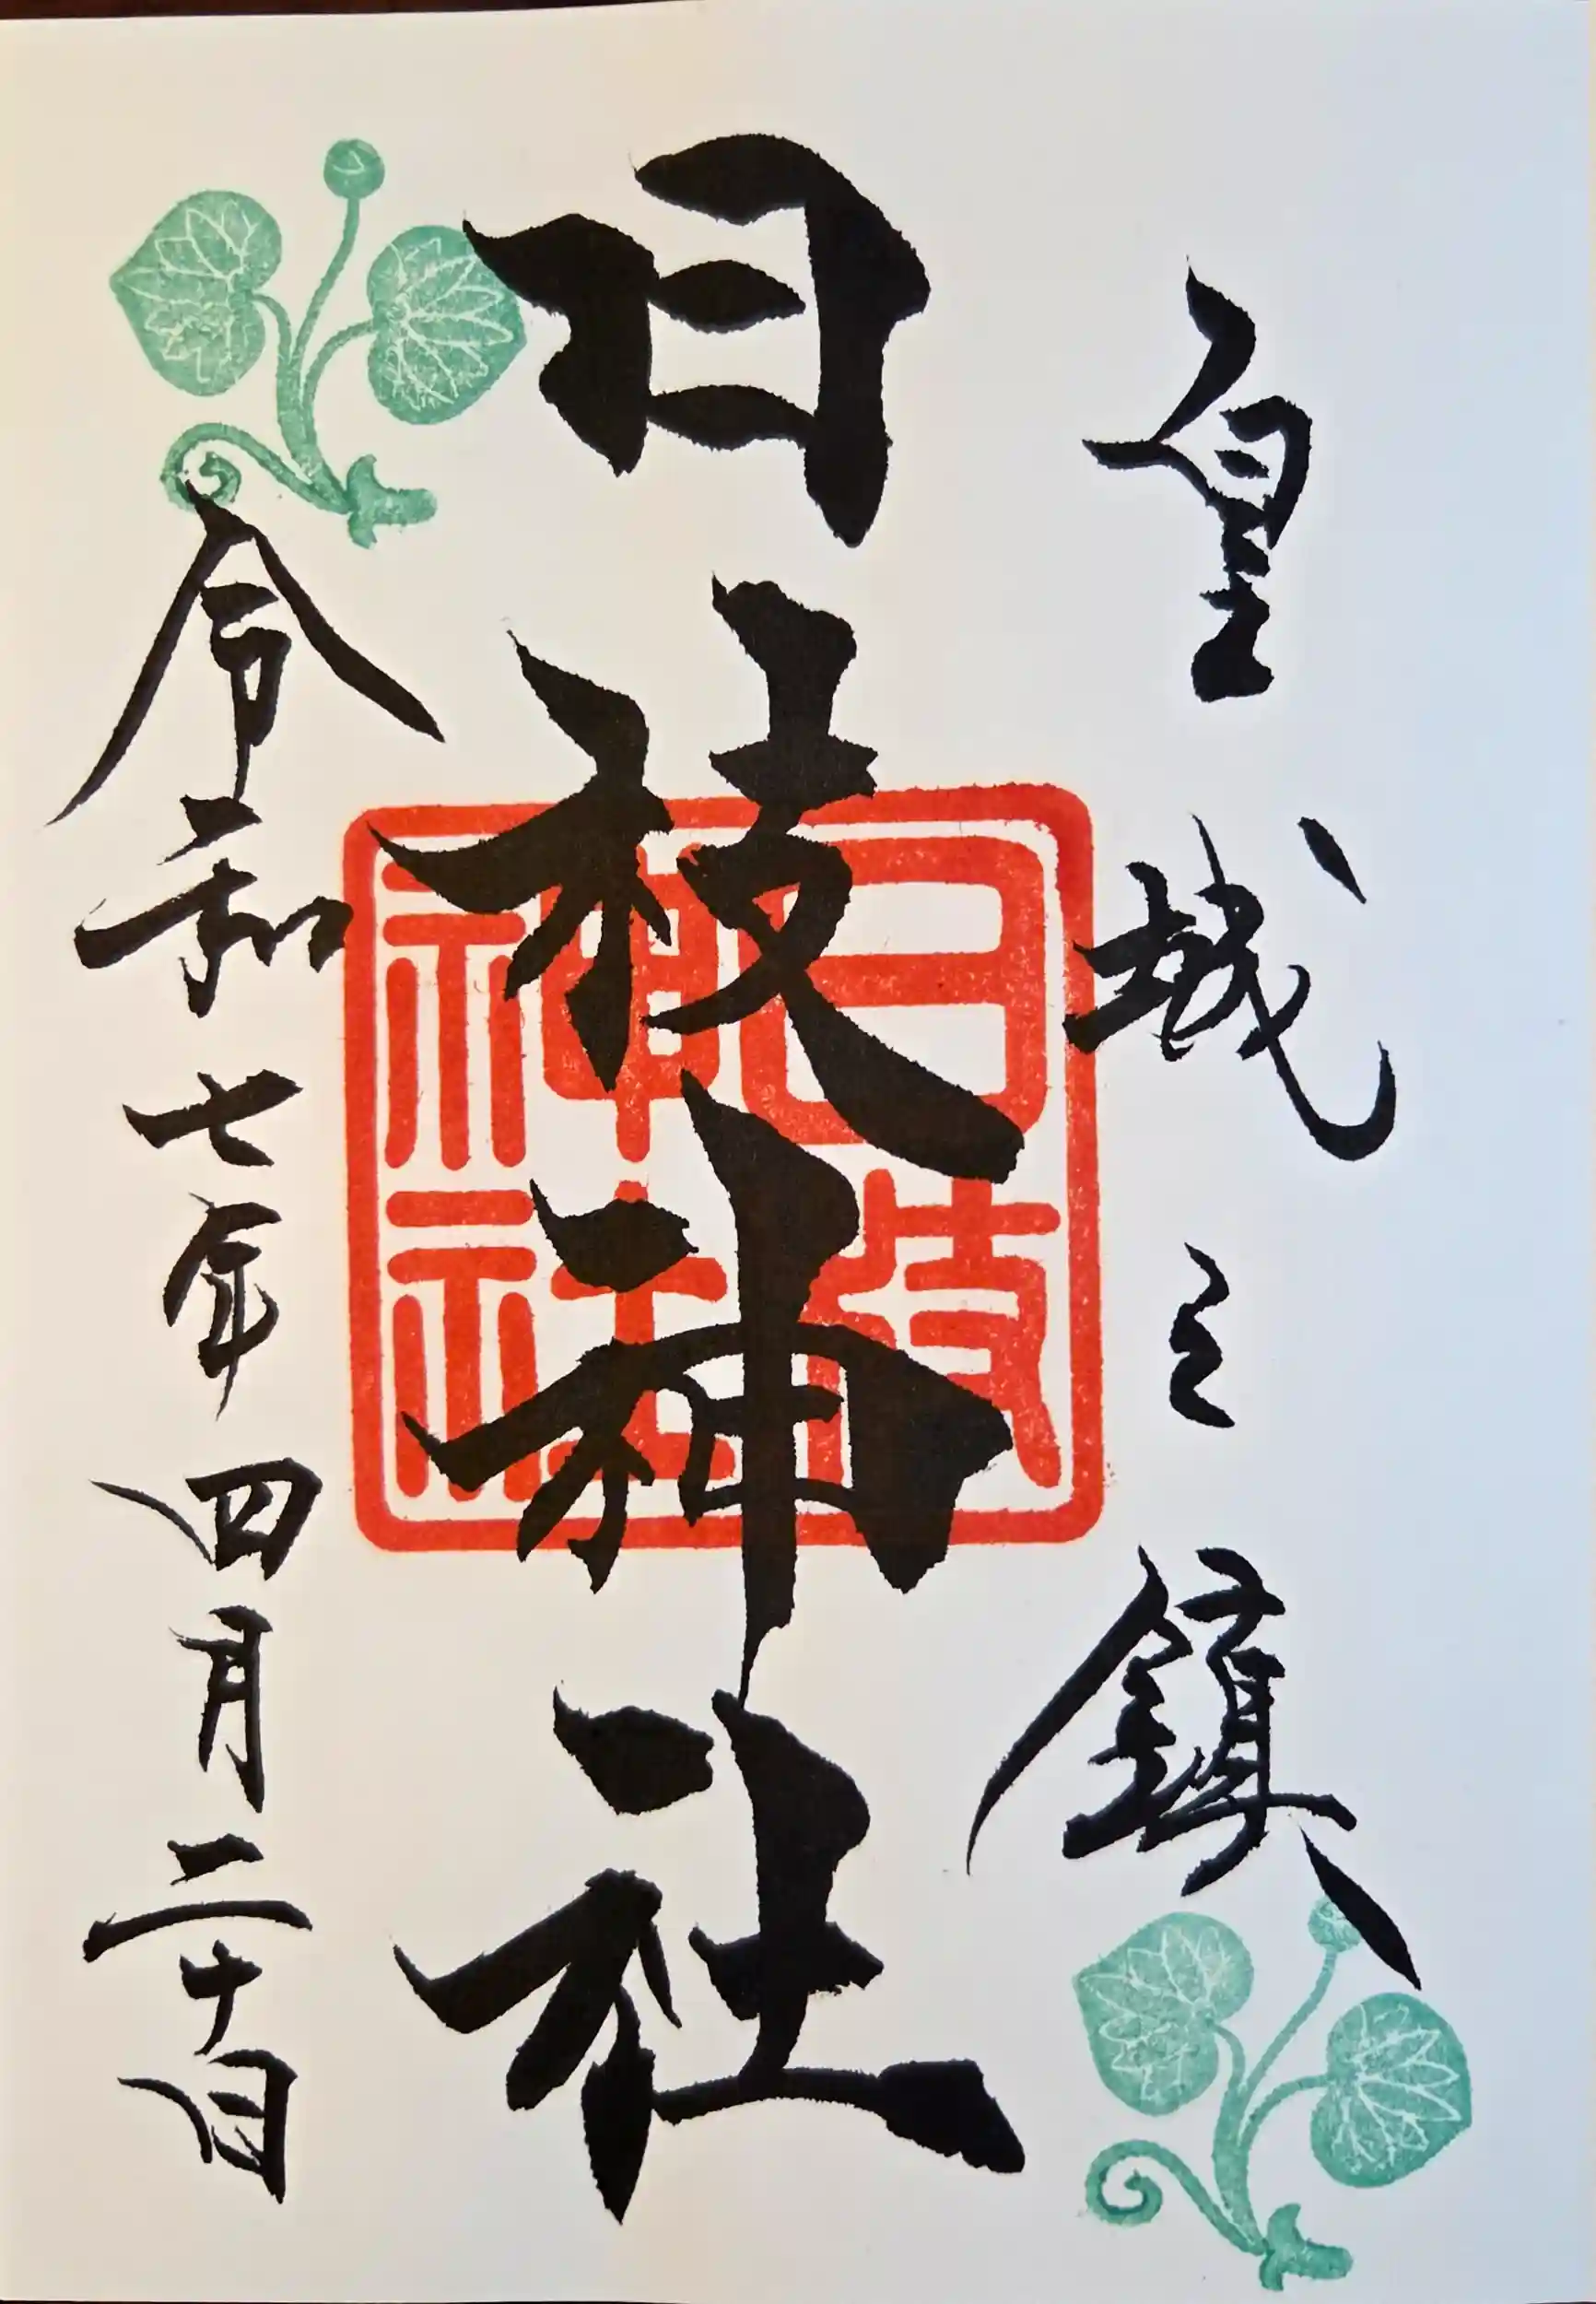 皇城之鎮
日枝神社
日枝神社
令和七年四月二十日